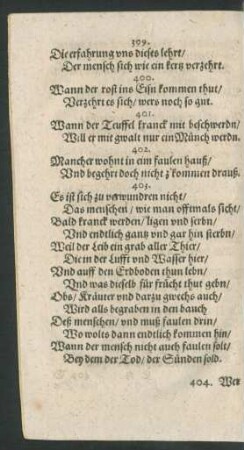 399.
Die erfahrung vns dieses lehrt/
Der mensch sich wie ein kertz verzehrt.
400.
Wann der rost ins Eisn kommen thut/
Verzehrt es sich/ wers noch so gut.
401.
Wann der Teuffel kranck mit beschwerdn/
Will er mit gwalt nur ein Münch werdn.
402.
Mancher wohnt in eim faulen hauß/
Vnd begehrt doch nicht z'kommen drauß.
403.
Es ist sich zu verwundren nicht/
Das menschen/ wie man offtmals sicht/
Bald kranck werden/ ligen vnd serbn/
Vnd endtlich gantz vnd gar hin sterbn/
Weil der Leib ein grab aller Thier/
Die in der Lufft vnd Wasser hier/
Vnd auff den Erdboden thun lebn/
Vnd was dieselb für frücht thut gebn/
Obs/ Kräuter vnd darzu gwechs auch/
Wird alls begraben in den bauch
Deß menschen/ vnd muß faulen drin/
Wo wolts dann endtlich kommen hin/
Wann der mensch nicht auch faulen solt/
Bey dem der Tod/ der Sünden sold.
404. Wer